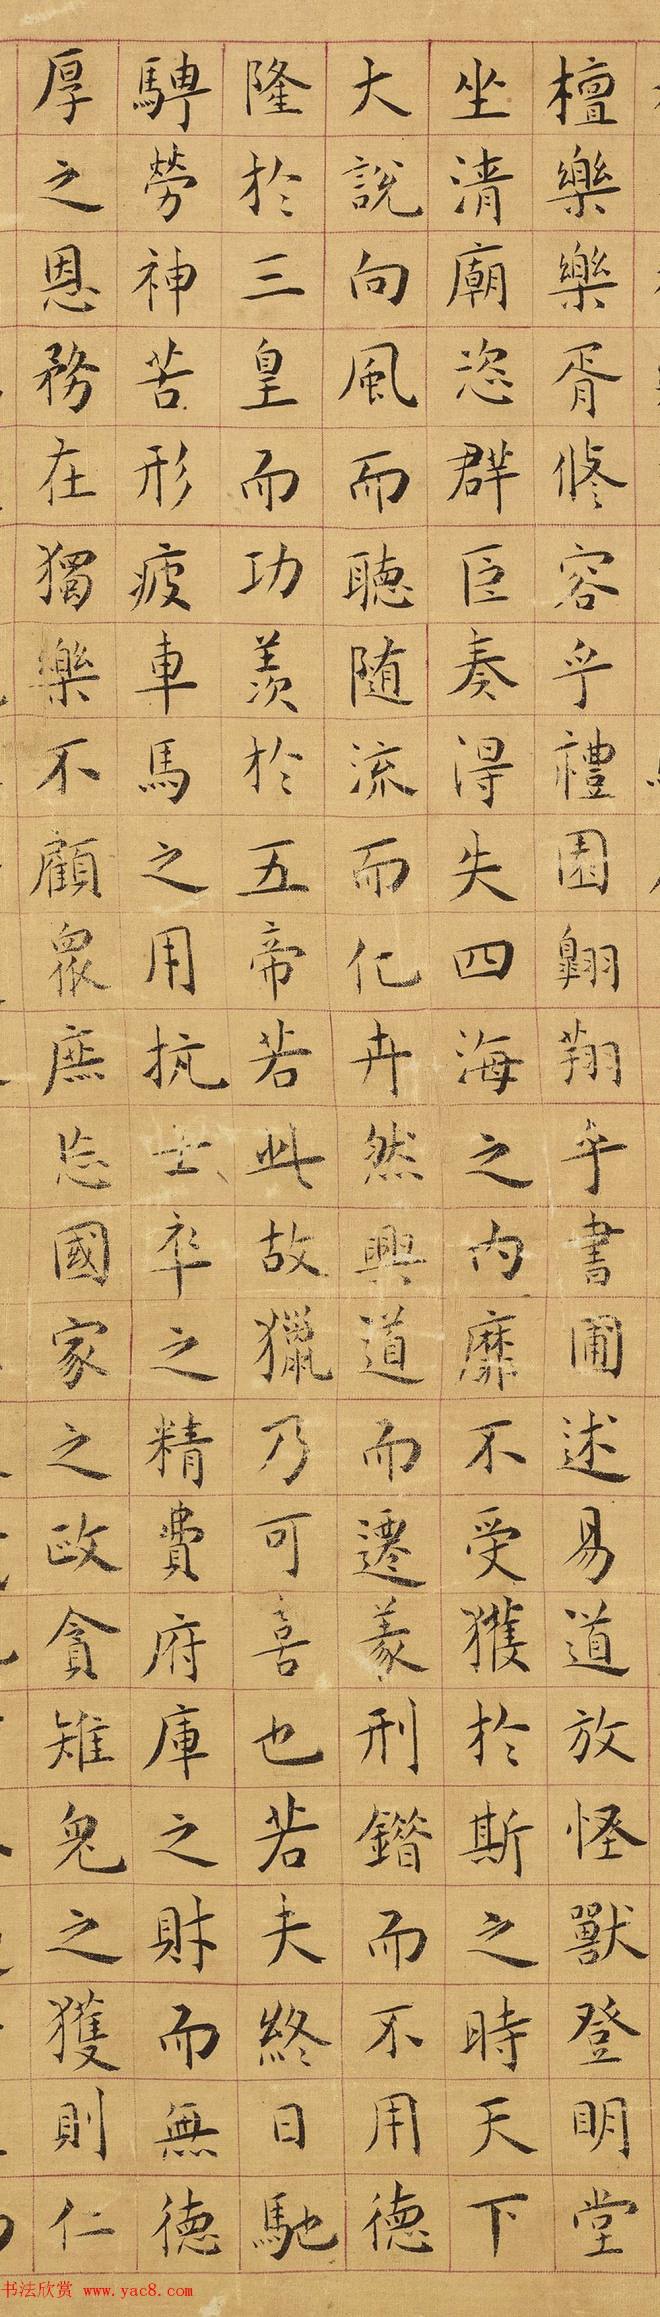 檀樂樂胥修容乎禮園翱翔乎書圃述易道放怪獸登明堂
坐清廟恣群臣奏得失四海之內靡不受獲於斯之時天下
大說向風而聽隨流而化卉然興道而遷義刑錯而不用德
隆於三皇而功羨於五帝若此故獵乃可喜也若夫終日馳
騁勞神苦形疲車馬之用抗士卒之精費府庫之財而無德
厚之恩務在獨樂不顧眾庶忘國家之政貪雉兔之獲則仁
书法欣赏 www.yac8.com